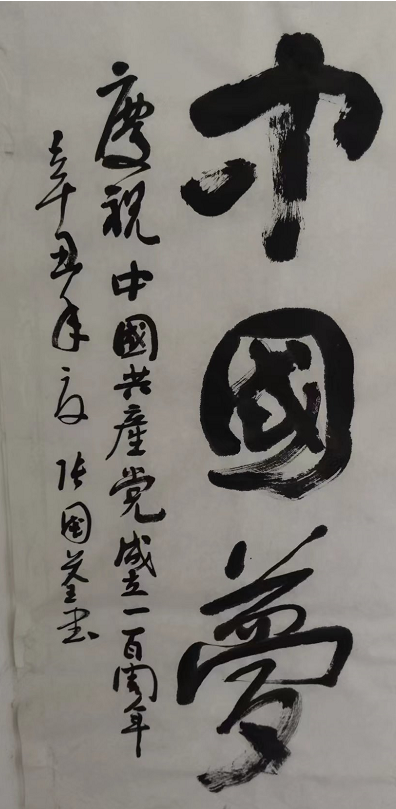 中國夢
慶祝中國共產党成立一百周年
辛丑年夏 張國荃书